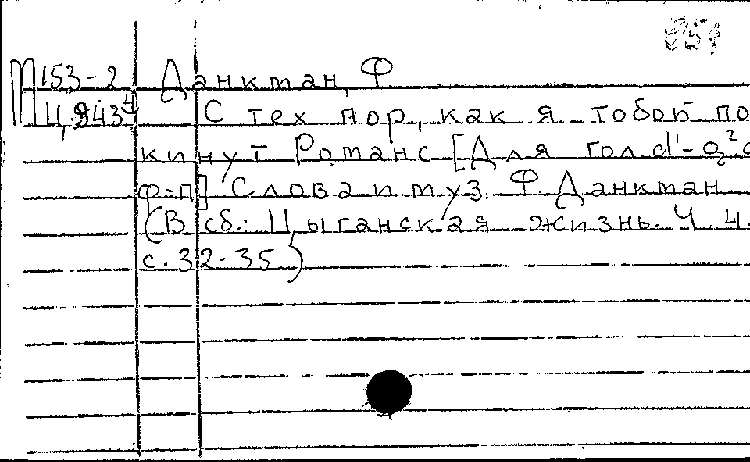 М153-2 Данкман, Ф
С тех пор, как я тобой по
кинут Романс [Для гол d'-g² с
ф-п] Слова и муз. Ф. Данкман
(В сб.: Цыганская жизнь. Ч 4.
с. 32-35)